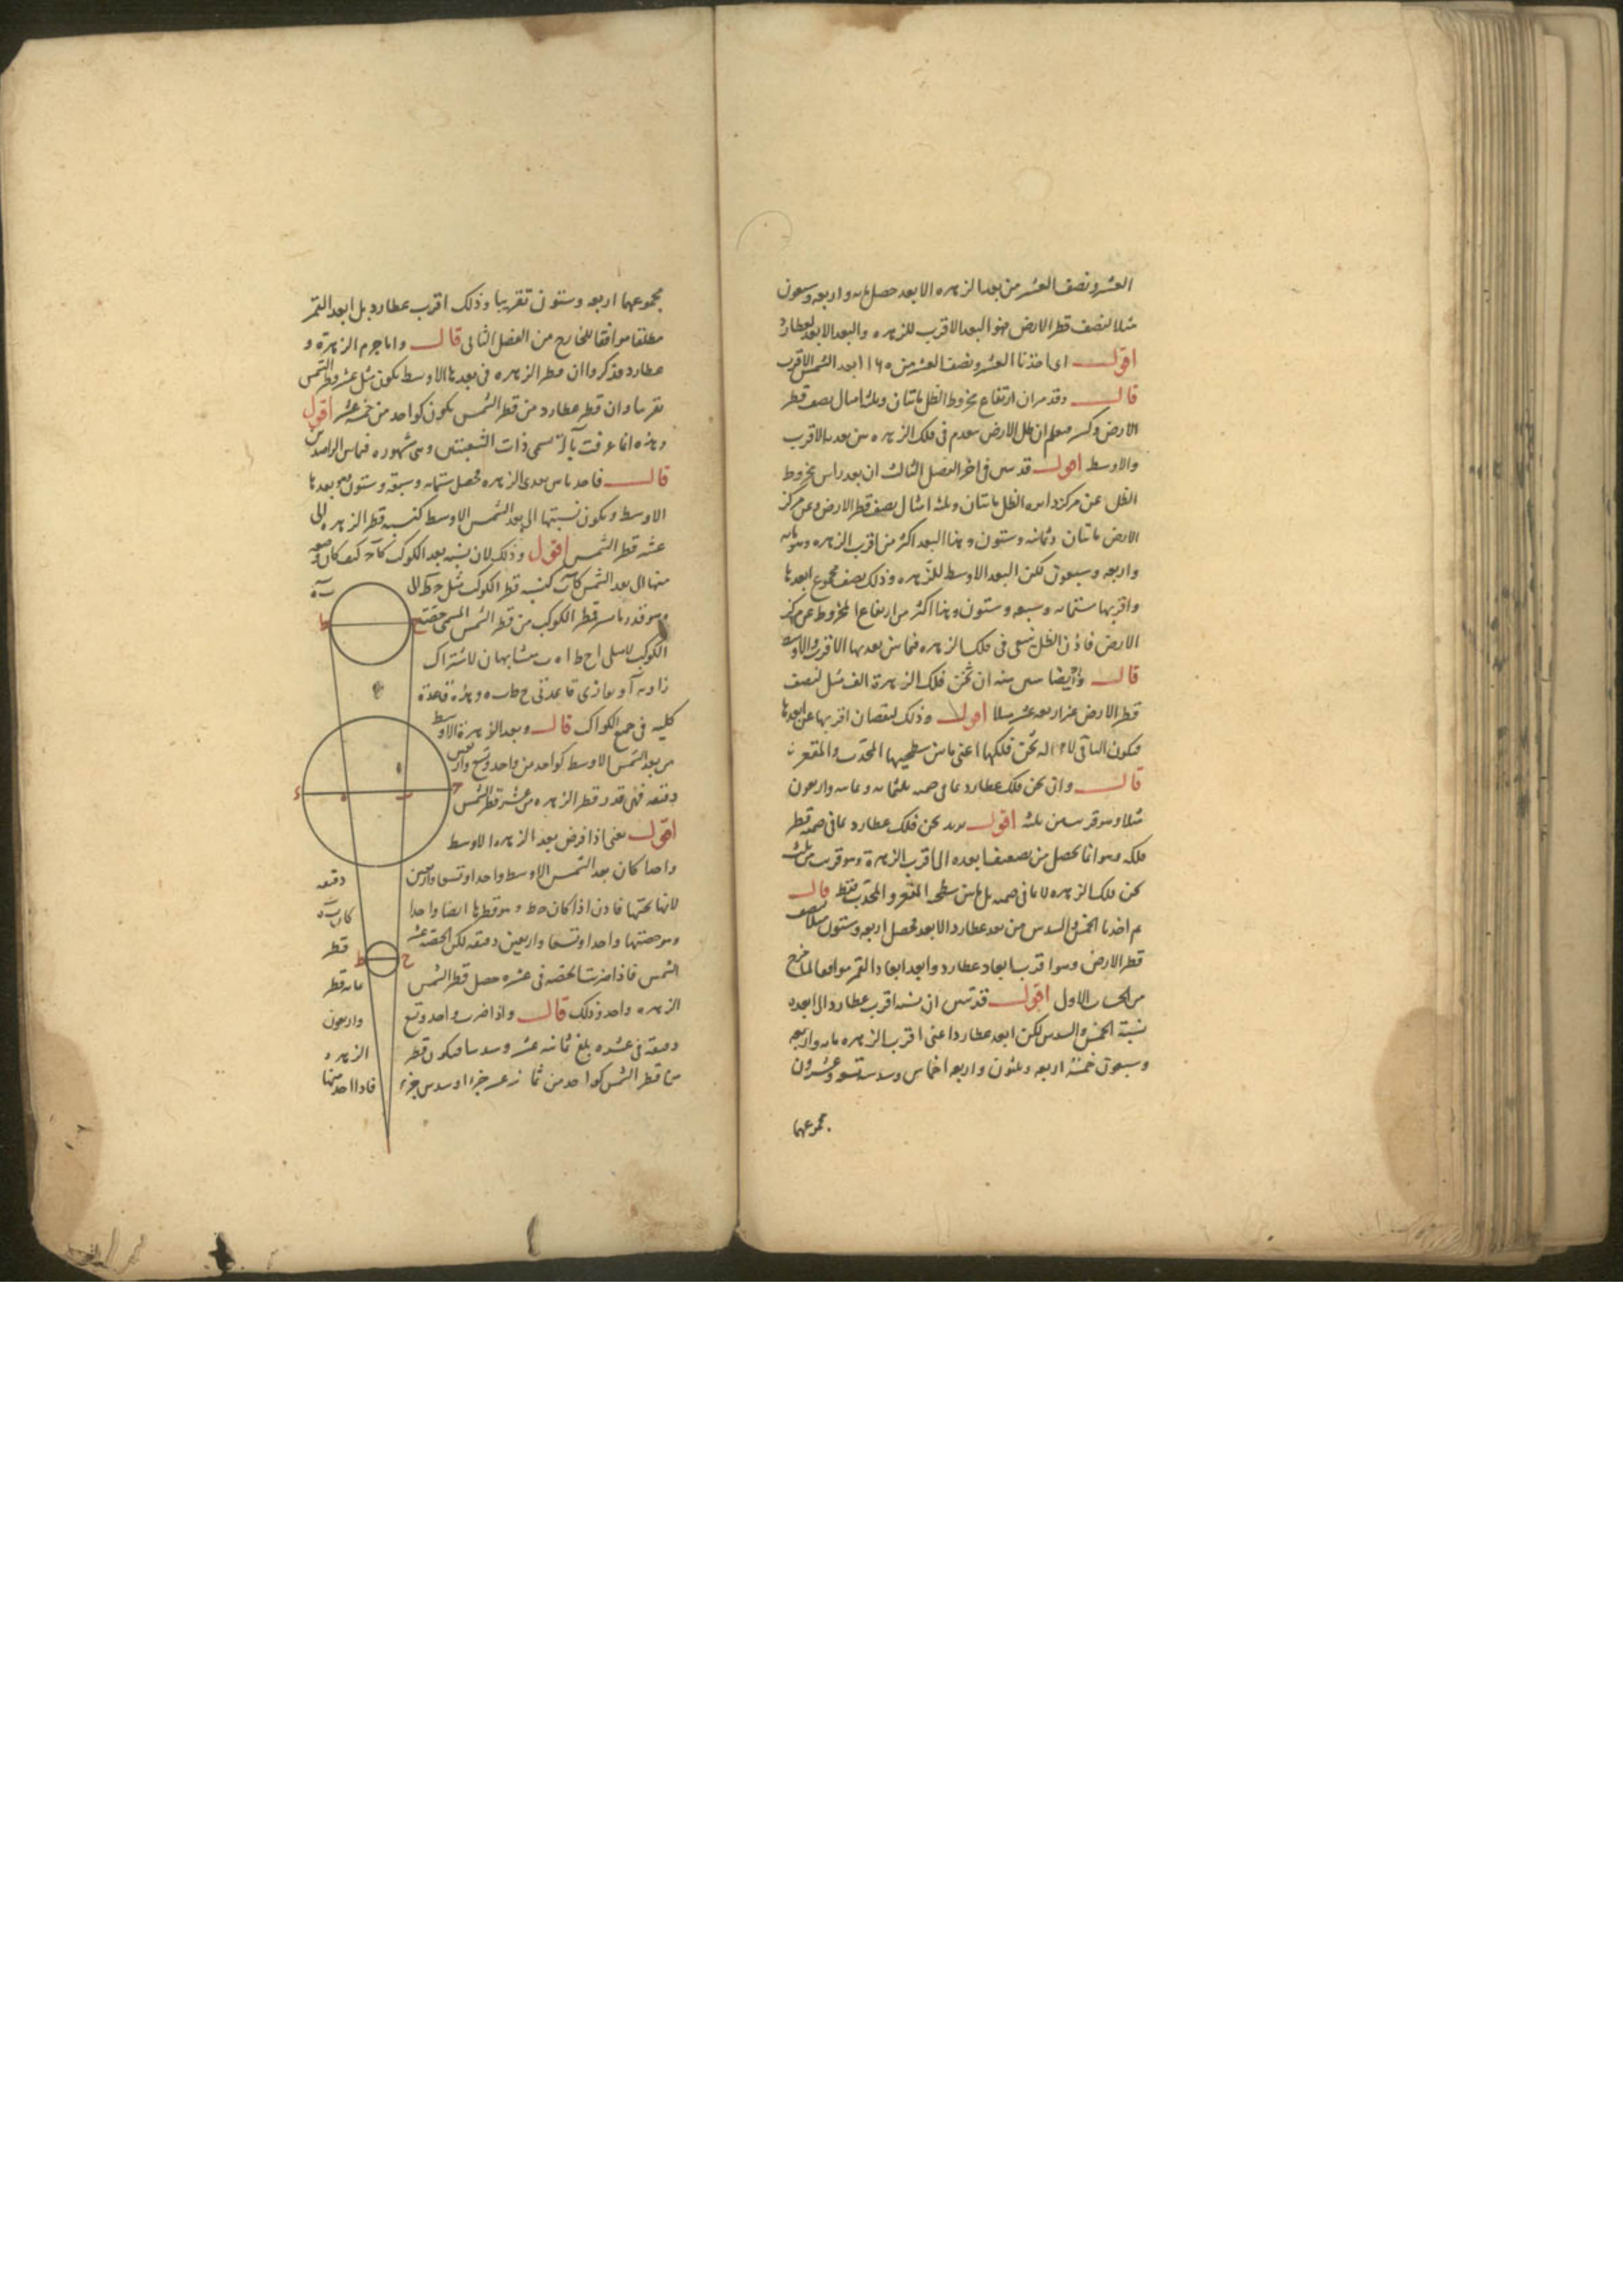 العشر ونصف العشر من بعد الزهره الابعد حصل مايه واربعه وسبعون
مثلا لنصف قطر الارض فهو البعد الاقرب للزهره والبعد الابعد لعطارد
اقول اى اخذنا العشر ونصف العشر من ١١٦٠ بعد الشمس الاقرب
قال وقد مر ان ارتفاع مخروط الظل مائتان وثلثه امثال نصف قطر
الارض وكسر فعلم ان ظل الارض ينعدم فى فلك الزهره بين بعديها الاقرب
والاوسط اقول قد تبين فى اخر الفصل الثالث ان بعد راس مخروط
الظل عن مركز دائره الظل مائتان وثلثه امثال نصف قطر الارض وعن مركز
الارض مائتان وثمانيه وستون وهذا البعد اكثر من اقرب الزهره وهو مايه
واربعه وسبعون لكن البعد الاوسط للزهره وذلك نصف مجموع ابعدها
واقربها ستمايه وسبعه وستون وهذا اكثر من ارتفاع المخروط عن مركز
الارض فاذن الظل ينتهى فى فلك الزهره فيما بين بعديها الاقرب والاوسط
قال وايضا تبين منه ان ثخن فلك الزهرة الف مثل لنصف
قطر الارض غير اربعه عشر مثلا اقول وذلك لنقصان اقربها عن ابعدها
فيكون الباقى ثخن فلكها اعنى ما بين سطحيها المحدب والمقعر
قال وان ثخن فلك عطارد بما فى ضمنه ثلثمايه وثمانيه واربعون
مثلا وهو قريب من ثلثه اقول يريد ثخن فلك عطارد بما فى ضمنه قطر
فلكه وهو انما يحصل من تضعيف ابعده اى اقرب الزهرة وهو قريب من ثلث
ثخن فلك الزهره لا بما فى ضمنه بل ما بين سطحيه المقعر والمحدب فقط قال
ثم اخذنا الخمس والسدس من بعد عطارد الابعد فحصل اربعه وستون مثلا لنصف
قطر الارض وهو اقرب ابعاد عطارد وابعد ابعاد القمر موافقا لما خرج
من الحساب الاول اقول قد تبين ان نسبه اقرب عطارد الى ابعده
نسبة الخمس والسدس لكن ابعد عطارد اعنى اقرب الزهره مايه واربعه
وسبعون خمسه اربعه وثلثون واربعه اخماس وسدسه تسعه وعشرون
مجموعهما
مجموعهما اربعه وستون تقريبا وذلك اقرب عطارد بل ابعد القمر
مطلقا موافقا للخارج من الفصل الثانى قال واما جرم الزهرة و
عطارد فذكروا ان قطر الزهره فى بعدها الاوسط يكون مثل عشر قطر الشمس
تقريبا وان قطر عطارد من قطر الشمس يكون كواحد من خمسه عشر اقول
وهذه انما عرفت بآلة تسمى ذات الشعبتين وهى مشهوره فيما بين الراصدين
قال فاخذ ما بين بعدى الزهره فحصل ستمايه وسبعه وستون هو بعدها
الاوسط ويكون نسبتها الى بعد الشمس الاوسط كنسبه قطر الزهره الى
عشر قطر الشمس اقول وذلك لان نسبه بعد الكوكب كآح كيف كان وضعه
منها الى بعد الشمس كآب كنسبه قطر الكوكب مثل ح ط الى ب ه
وهو قدر ما يستر قطر الكوكب من قطر الشمس المسمى حصة
الكوكب لان مثلثى ا ح ط ا ه ب متشابهان لاشتراك
زاويه آ وتوازى قاعدتى ح ط ب ه وهذه قاعدة
كليه فى جميع الكواكب قال وبعد الزهرة الاوسط
من بعد الشمس الاوسط كواحد من واحد وتسع واربعين
دقيقه فهى قدر قطر الزهره من عشر قطر الشمس
اقول يعنى اذا فرض بعد الزهره الاوسط
واحدا كان بعد الشمس الاوسط واحدا وتسعا واربعين دقيقه
لانها تحتها فاذن اذا كان ح ط وهو قطرها ايضا واحدا كان ب ه
وهو حصتها واحدا وتسعا واربعين دقيقه لكن الحصه عشر قطر
الشمس فاذا ضربت الحصه فى عشره حصل قطر الشمس بما به قطر
الزهره واحد وذلك قال واذا ضرب واحد وتسع واربعون
دقيقه فى عشره بلغ ثمانيه عشر وسدسا فيكون قطر الزهره
من قطر الشمس كواحد من ثمانيه عشر جزءا وسدس جزء فاذا اخذ منها